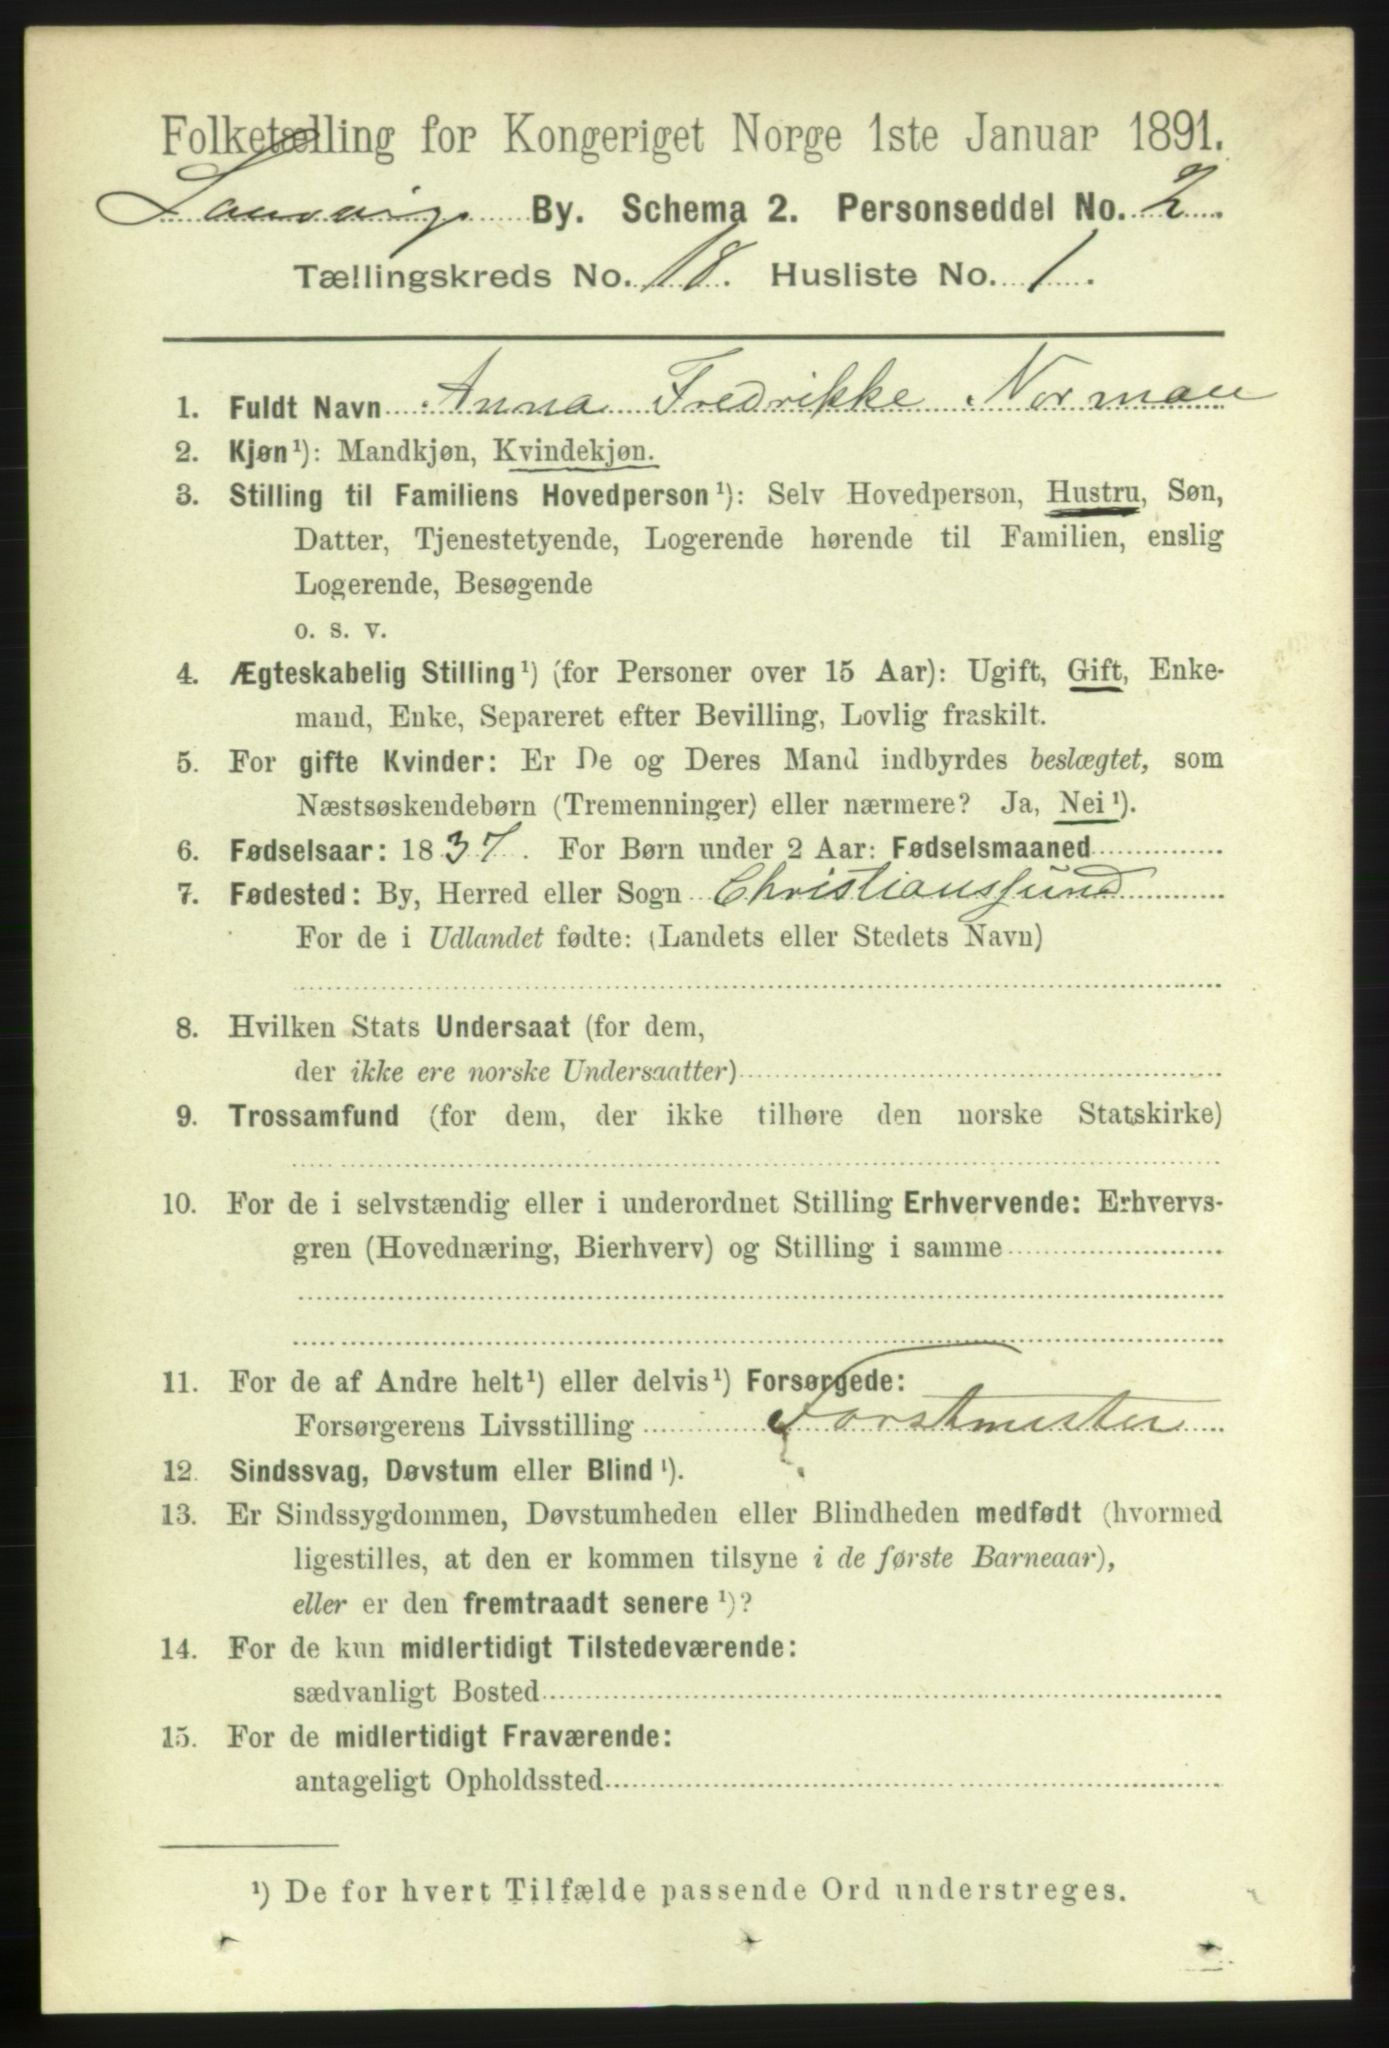 Folketælling for Kongeriget Norge 1ste Januar 1891.
Laurvig By. Schema 2. Personseddel No. 2
Tællingskreds No. 18. Husliste No. 1.
1. Fuldt Navn Anna Fredrikke Norman
2. Kjøn¹): Mandkjøn, Kvindekjøn.
3. Stilling til Familiens Hovedperson¹): Selv Hovedperson, Hustru, Søn,
Datter, Tjenestetyende, Logerende hørende til Familien, enslig
Logerende, Besøgende
o. s. v.
4. Ægteskabelig Stilling¹) (for Personer over 15 Aar): Ugift, Gift, Enke-
mand, Enke, Separeret efter Bevilling, Lovlig fraskilt.
5. For gifte Kvinder: Er De og Deres Mand indbyrdes beslægtet, som
Næstsøskendebørn (Tremenninger) eller nærmere? Ja, Nei¹).
6. Fødselsaar: 1837. For Børn under 2 Aar: Fødselsmaaned
7. Fødested: By, Herred eller Sogn Christianssund
For de i Udlandet fødte: (Landets eller Stedets Navn)
8. Hvilken Stats Undersaat (for dem,
der ikke ere norske Undersaatter)
9. Trossamfund (for dem, der ikke tilhøre den norske Statskirke)
10. For de i selvstændig eller i underordnet Stilling Erhvervende: Erhvervs-
gren (Hovednæring, Bierhverv) og Stilling i samme
11. For de af Andre helt¹) eller delvis¹) Forsørgede:
Forsørgerens Livsstilling Forstmester
12. Sindssvag, Døvstum eller Blind¹).
13. Er Sindssygdommen, Døvstumheden eller Blindheden medfødt (hvormed
ligestilles, at den er kommen tilsyne i de første Barneaar),
eller er den fremtraadt senere¹)?
14. For de kun midlertidigt Tilstedeværende:
sædvanligt Bosted
15. For de midlertidigt Fraværende:
antageligt Opholdssted
¹) De for hvert Tilfælde passende Ord understreges.